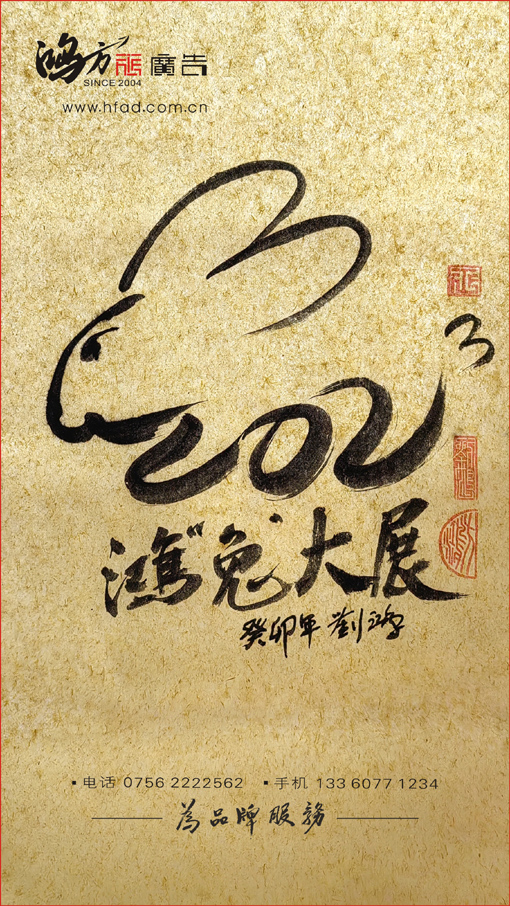 鸿方 廣告
SINCE 2004
www.hfad.com.cn
2023
鴻"兔"大展
癸卯年 劉鴻
▪电话 0756 2222562 ▪手机 133 6077 1234
為品牌服務